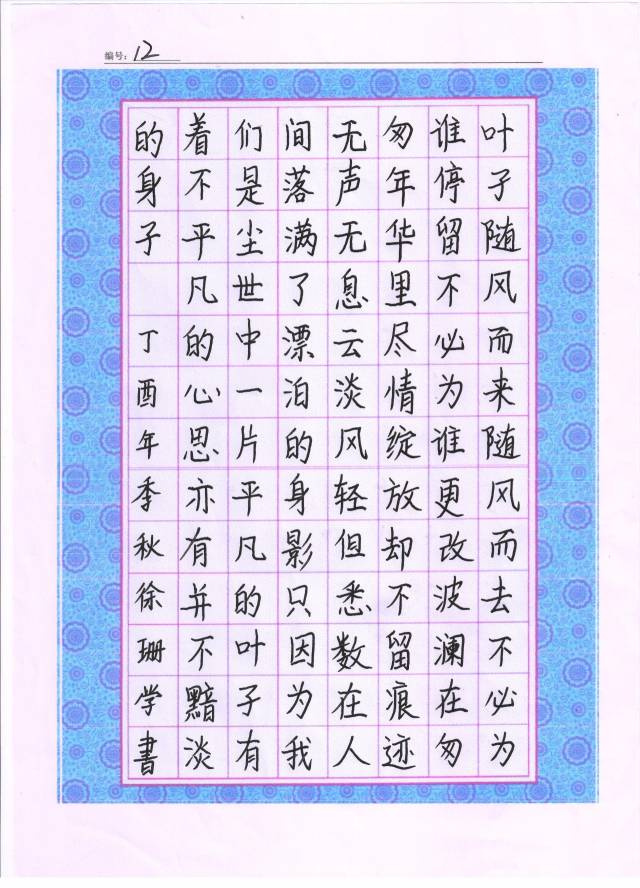 编号：12
叶子随风而来随风而去不必为
谁停留不必为谁更改波澜在匆
匆年华里尽情绽放却不留痕迹
无声无息云淡风轻但悉数在人
间落满了漂泊的身影只因为我
们是尘世中一片平凡的叶子有
着不平凡的心思亦有并不黯淡
的身子 丁酉年季秋徐珊学書